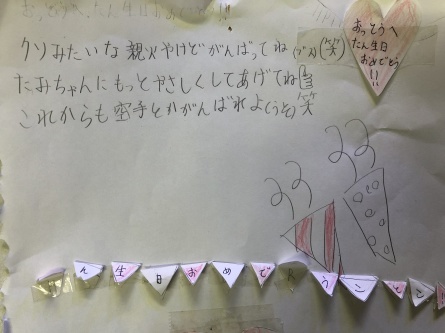 おっとうへ
たん生日
おめでとう
!!
クソみたいな親父やけどがんばってね(笑)
たみちゃんにもっとやさしくしてあげてね 笑
これからも空手とかがんばれよ(うそ)笑
ん生日おめでとうこ